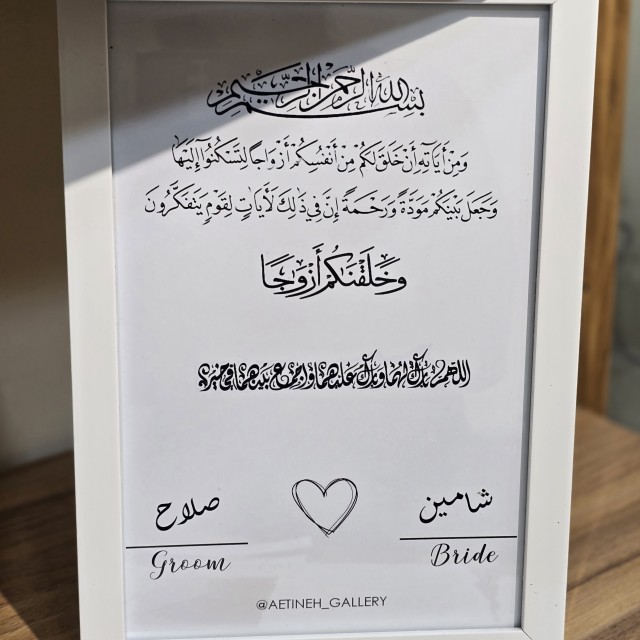 بسم الله الرحمن الرحيم
وَمِنْ أَيَاتِهِ أَنْ خَلَقَ لَكُمْ مِنْ أَنْفُسِكُمْ أَزْوَاجًا لِتَسْكُنُوا إِلَيْهَا
وَجَعَلَ بَيْنَكُمْ مَوَدَّةً وَرَحْمَةً إِنَّ فِي ذَلِكَ لَأَيَاتٍ لِقَوْمٍ يَتَفَكَّرُونَ
وَخَلَقْنَكُمْ أَزْوَجًا
اللهم بارك لهما وبارك عليهما واجمع بينهما في خير
شامين
صلاح
Bride
Groom
@AETINEH_GALLERY